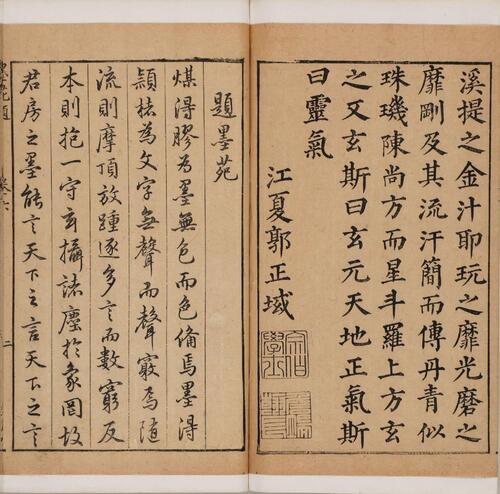 溪提之金汁耶玩之靡光磨之
靡剛及其流汗簡而傳丹青似
珠璣陳尚方而星斗羅上方玄
之又玄斯曰玄元天地正氣斯
曰靈氣
江夏郭正域
題墨苑
煤得膠為墨無色而色備焉墨得
穎楮為文字無聲而聲寂焉隨
流則摩頂放踵逐多言而數窮反
本則抱一守玄攝諸塵於象罔故
君房之墨能言天下之言天下之言